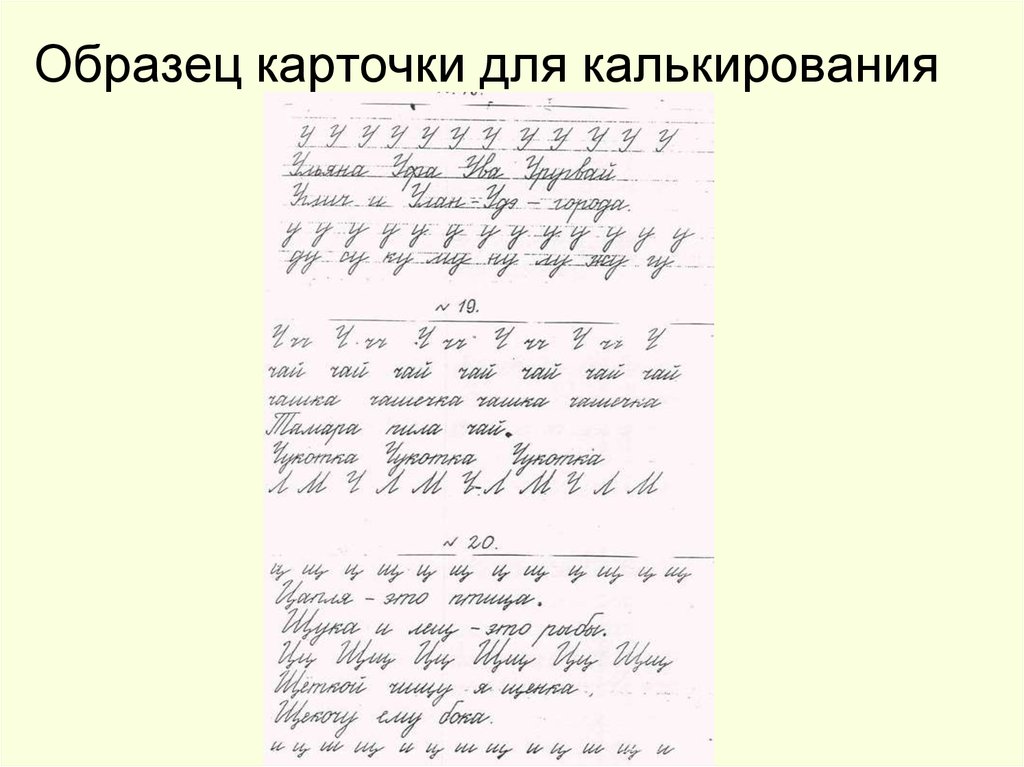 Образец карточки для калькирования
У У У У У У У У У У У У У
Ульяна Уфа Ува Уругвай
Углич и Улан-Удэ – города.
у у у у у у у у у у у у у у
ду су ку му ну лу жу гу
№ 19.
Ч чч Ч чч Ч чч Ч чч Ч чч Ч
чай чай чай чай чай чай чай
чашка чашечка чашка чашечка
Тамара пила чай.
Чукотка Чукотка Чукотка
Л М Ч Л М Ч Л М Ч Л М
№ 20.
ц щ ц щ ц щ ц щ ц щ ц щ
Цапля – это птица.
Щука и лещ – это рыбы.
Цц Щщ Цц Щщ Цц Щщ
Щёткой чищу я щенка,
Щекочу ему бока.
и ц ш щ и ц ш щ и ц ш щ и